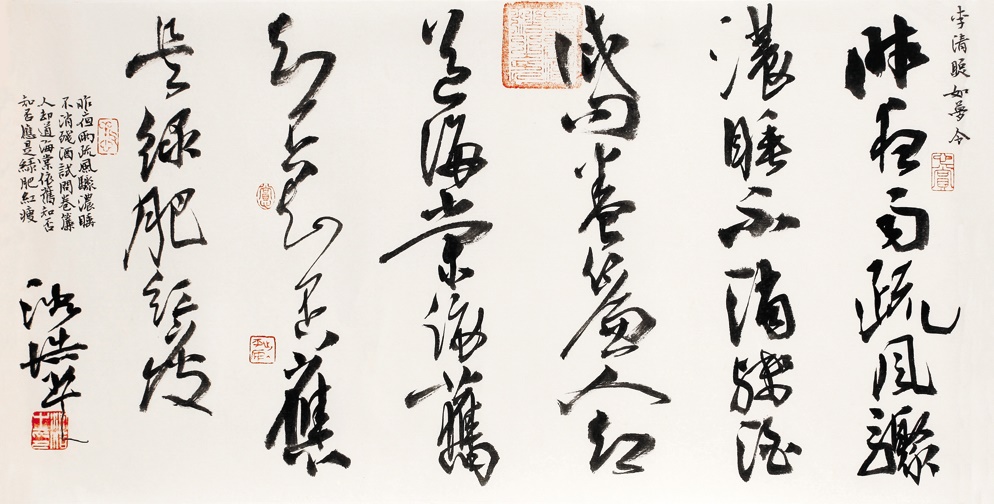 李清照如夢令
昨夜雨疏風驟
濃睡不消殘酒
試問卷簾人却
道海棠依舊
知否知否應
是綠肥紅瘦
昨夜雨疏風驟濃睡
不消殘酒試問卷簾
人却道海棠依舊知否
知否應是綠肥紅瘦